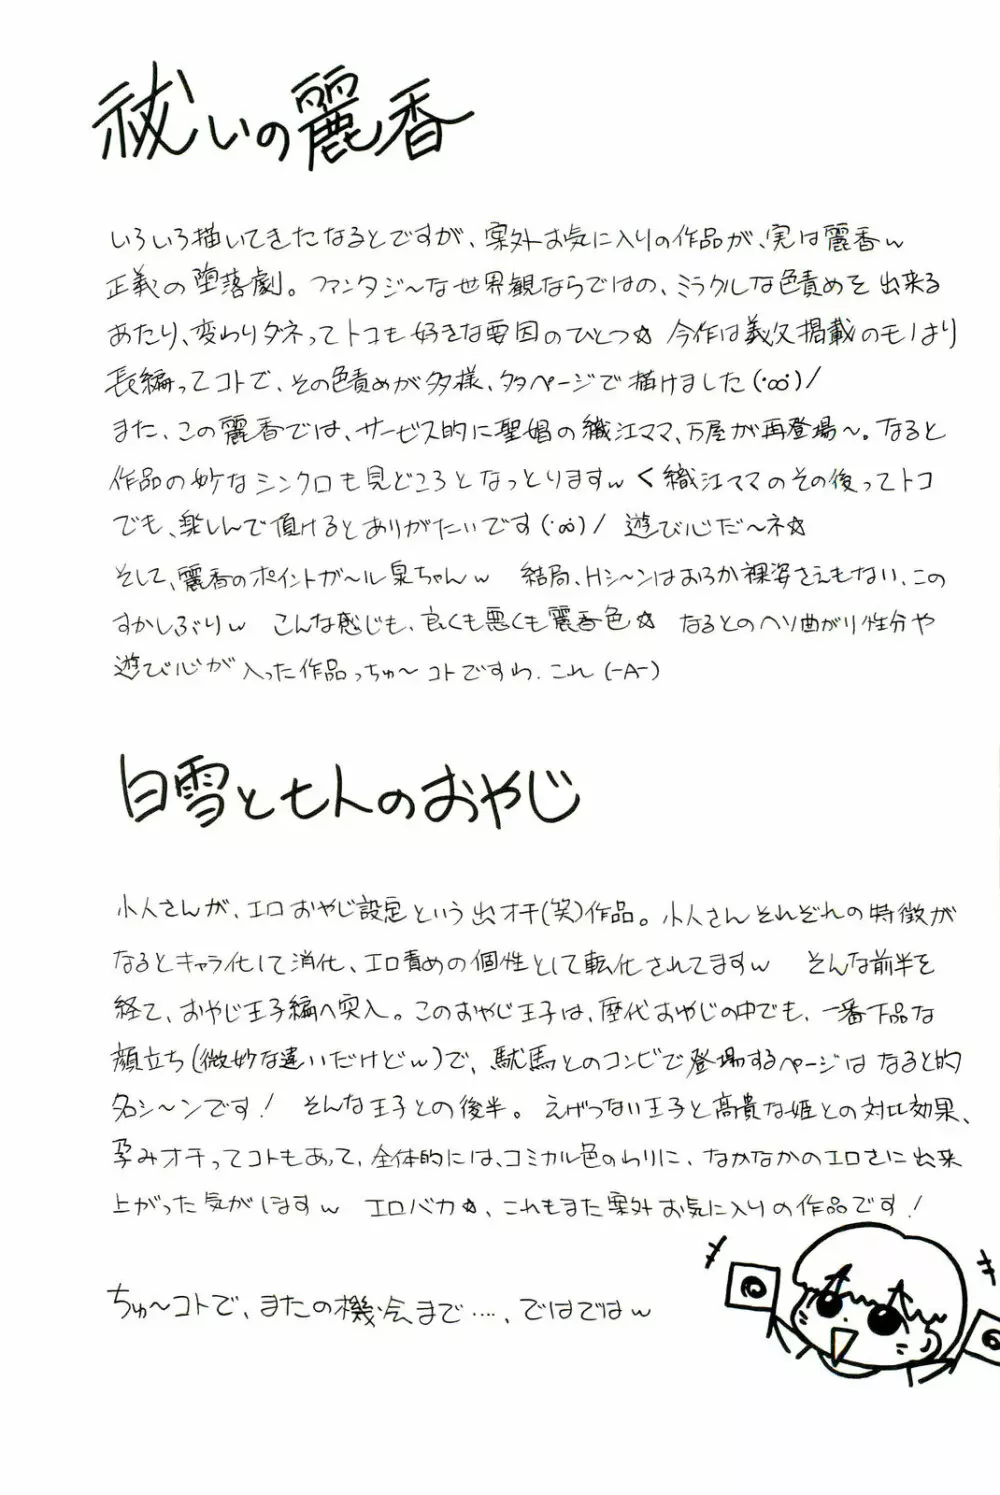 祓いの麗香
いろいろ描いてきたなるとですが、案外お気に入りの作品が、実は麗香w
正義の堕落劇。ファンタジ〜な世界観ならではの、ミラクルな色責めを出来る
あたり、変わりダネってトコも好きな要因のひとつ☆ 今作は義父掲載のモノはり
長編ってコトで、その色責めが多様、多ページで描けました(・∞・)/
また、この麗香では、サービス的に聖娼の織江ママ、万屋が再登場〜。なると
作品の妙なシンクロも見どころとなっとりますw く織江ママのその後ってトコ
でも、楽しんで頂けるとありがたいです(・∞・)/ 遊び心だ〜ネ☆
そして、麗香のポイントガ〜ル泉ちゃんw 結局、Hシ〜ンはおろか裸姿さえもない、この
すかしぶりw こんな感じも、良くも悪くも麗香色☆ なるとのヘソ曲がり性分や
遊び心が入った作品っちゅ〜コトですわ、これ(-A-)
白雪と七人のおやじ
小人さんが、エロおやじ設定という出オチ(笑)作品。小人さんそれぞれの特徴が
なるとキャラ化して消化、エロ責めの個性として転化されてますw そんな前半を
経て、おやじ王子編へ突入。このおやじ王子は、歴代おやじの中でも、一番下品な
顔立ち(微妙な違いだけどw)で、駄馬とのコンビで登場するページはなると的
名シ〜ンです! そんな王子との後半。えげつない王子と高貴な姫との対比効果、
孕みオチってコトもあって、全体的には、コミカル色のわりに、なかなかのエロさに出来
上がった気がしますw エロバカ☆、これもまた案外お気に入りの作品です!
ちゅ〜コトで、またの機会まで‥‥、ではではw